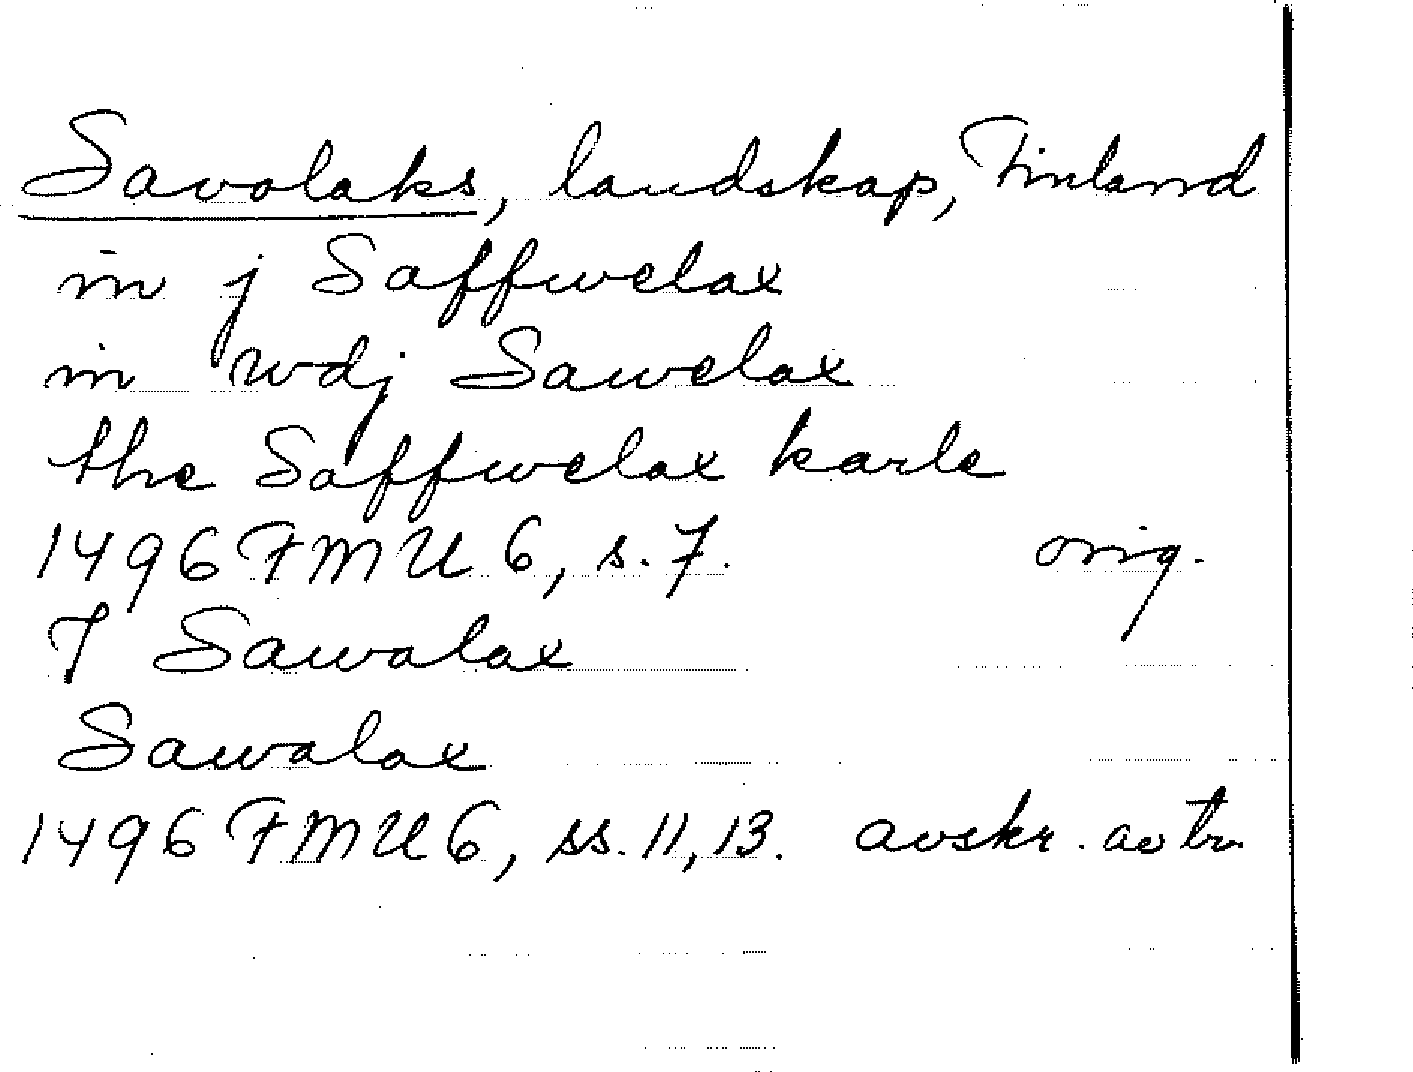 Savolaks, landskap, Finland
in j Saffwelax
in wdj Sawelax
the Saffwelax karle
1496 FMU 6, s. 7. orig.
J Sawalax
Sawalax
1496 FMU 6, ss. 11, 13. avskr. av tr.